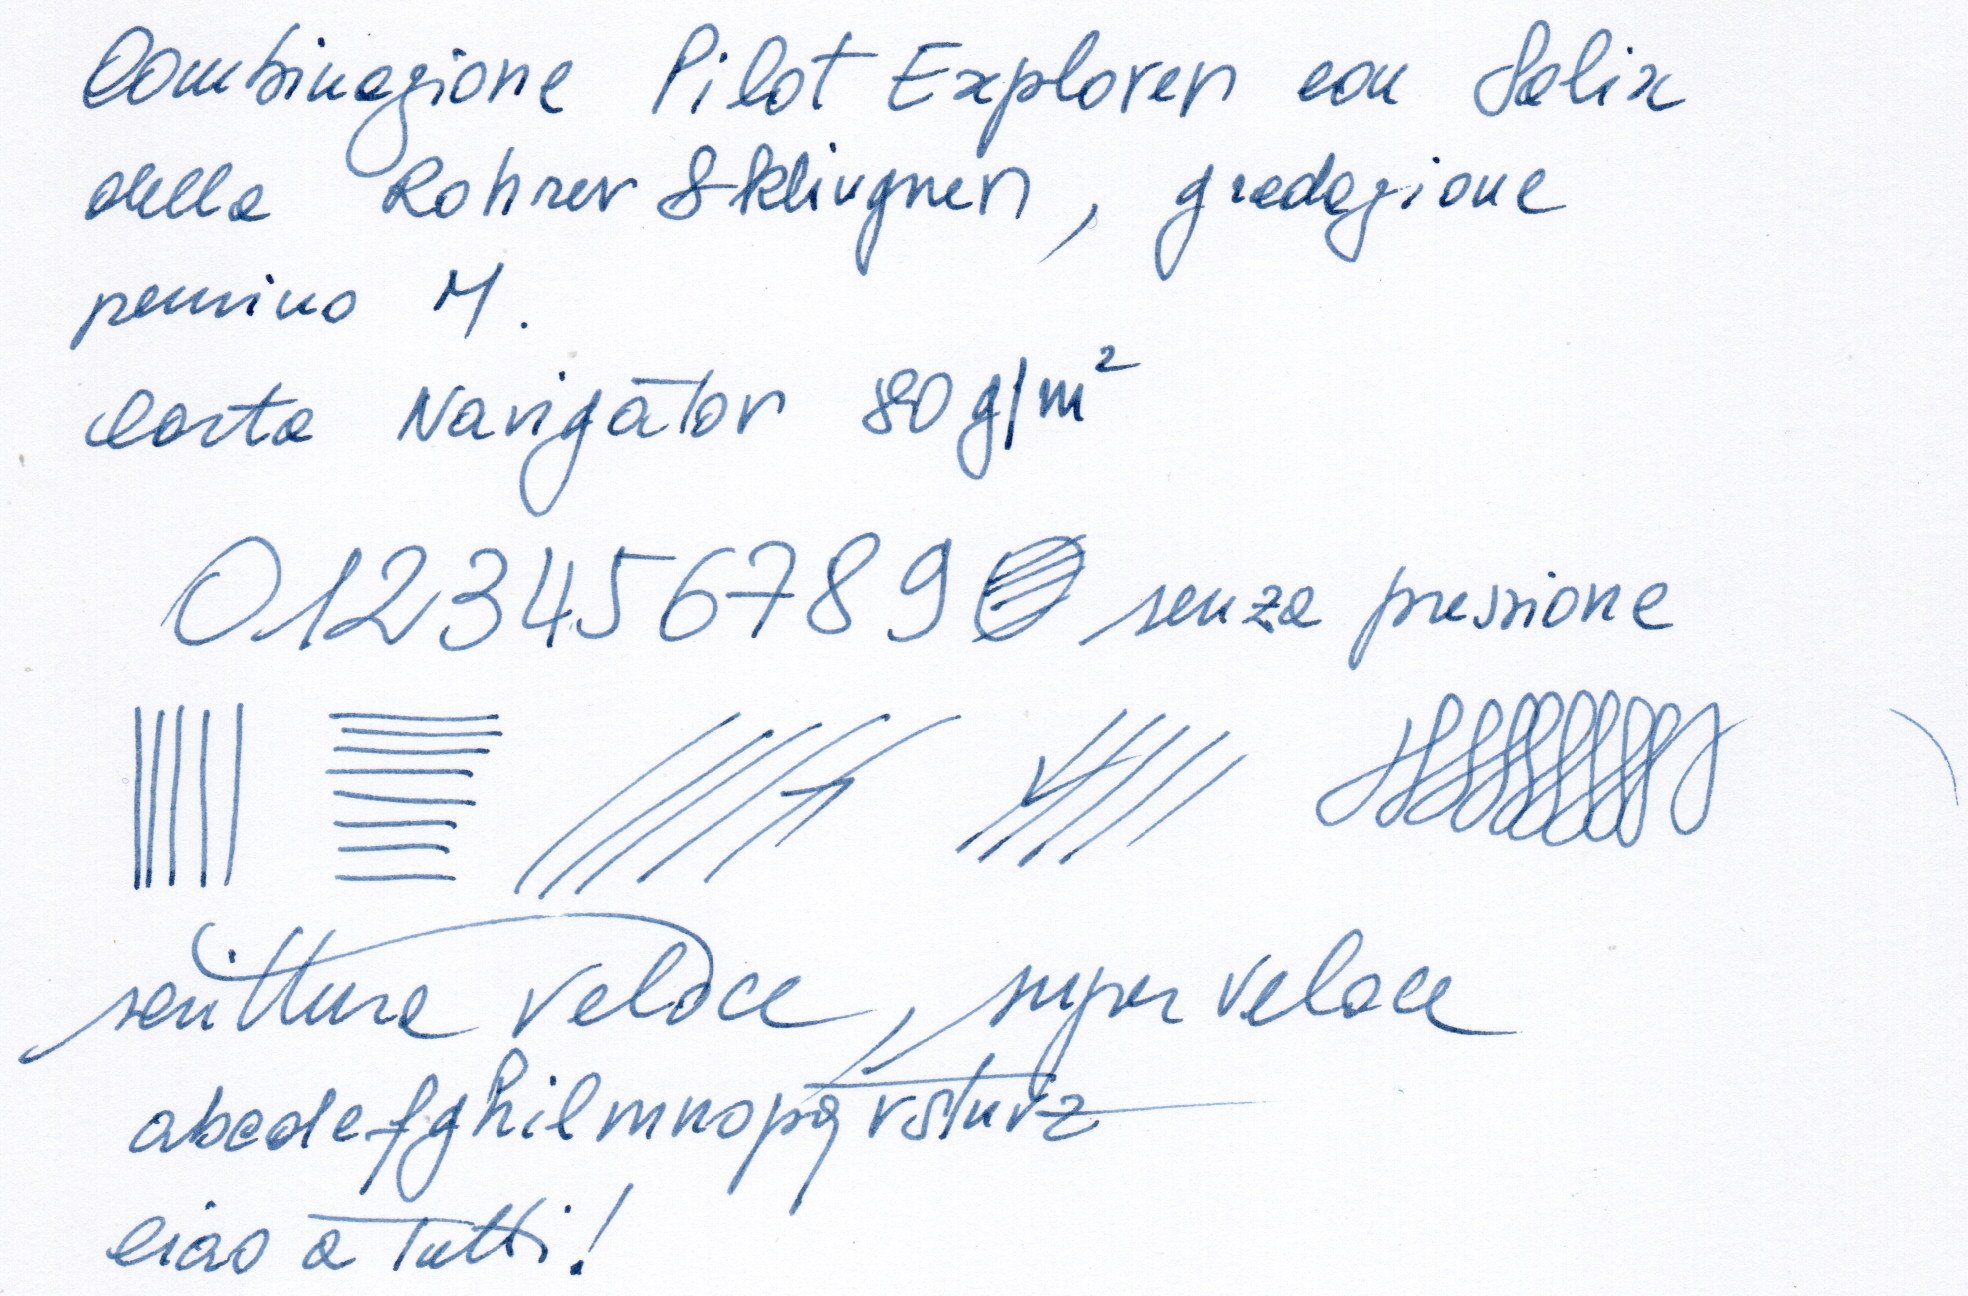 Combinazione Pilot Explorer con Salix
della Rohrer & Klingner, gradazione
pennino M.
Carta Navigator 80 g/m²
0123456789 0 senza pressione
scrittura veloce, super veloce
abcdefghilmnopqrstuvz
ciao a tutti!